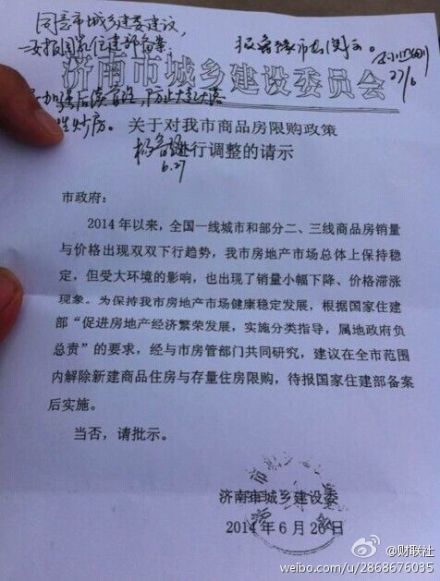 同意市城乡建委建议，
报
济南市城乡建设委员会
关于对我市商品房限购政策
行调整的请示
6.27
市政府：
2014年以来，全国一线城市和部分二、三线商品房销量
与价格出现双双下行趋势，我市房地产市场总体上保持稳
定，但受大环境的影响，也出现了销量小幅下降、价格滞涨
现象。为保持我市房地产市场健康稳定发展，根据国家住建
部“促进房地产经济繁荣发展，实施分类指导，属地政府负
总责”的要求，经与市房管部门共同研究，建议在全市范围
内解除新建商品住房与存量住房限购，待报国家住建部备案
后实施。
当否，请批示。
济南市城乡建设委
2014年6月26日
财联社
weibo.com/u/2868676035